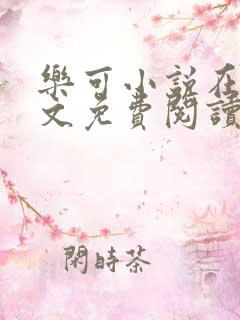 樂可小說在
文免費閱讀
閑時茶